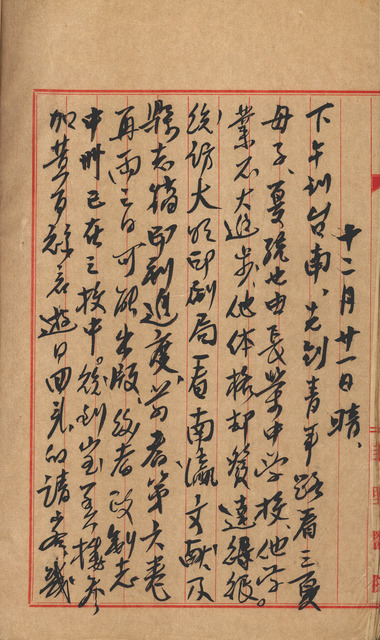 十二月廿一日晴、
下午到台南、先到青年路看三夏
母子、夏統也由長榮中學校、他学
業不大進步、他体格却發達得很。
統訪大明印刷局看南瀛文献及
縣志稿印刷進度、前者第六卷
再兩三日可能出版、後者政制志
中冊已在三校中。統到宝美樓参
加黃百禄哀遊日回来的請客、幾